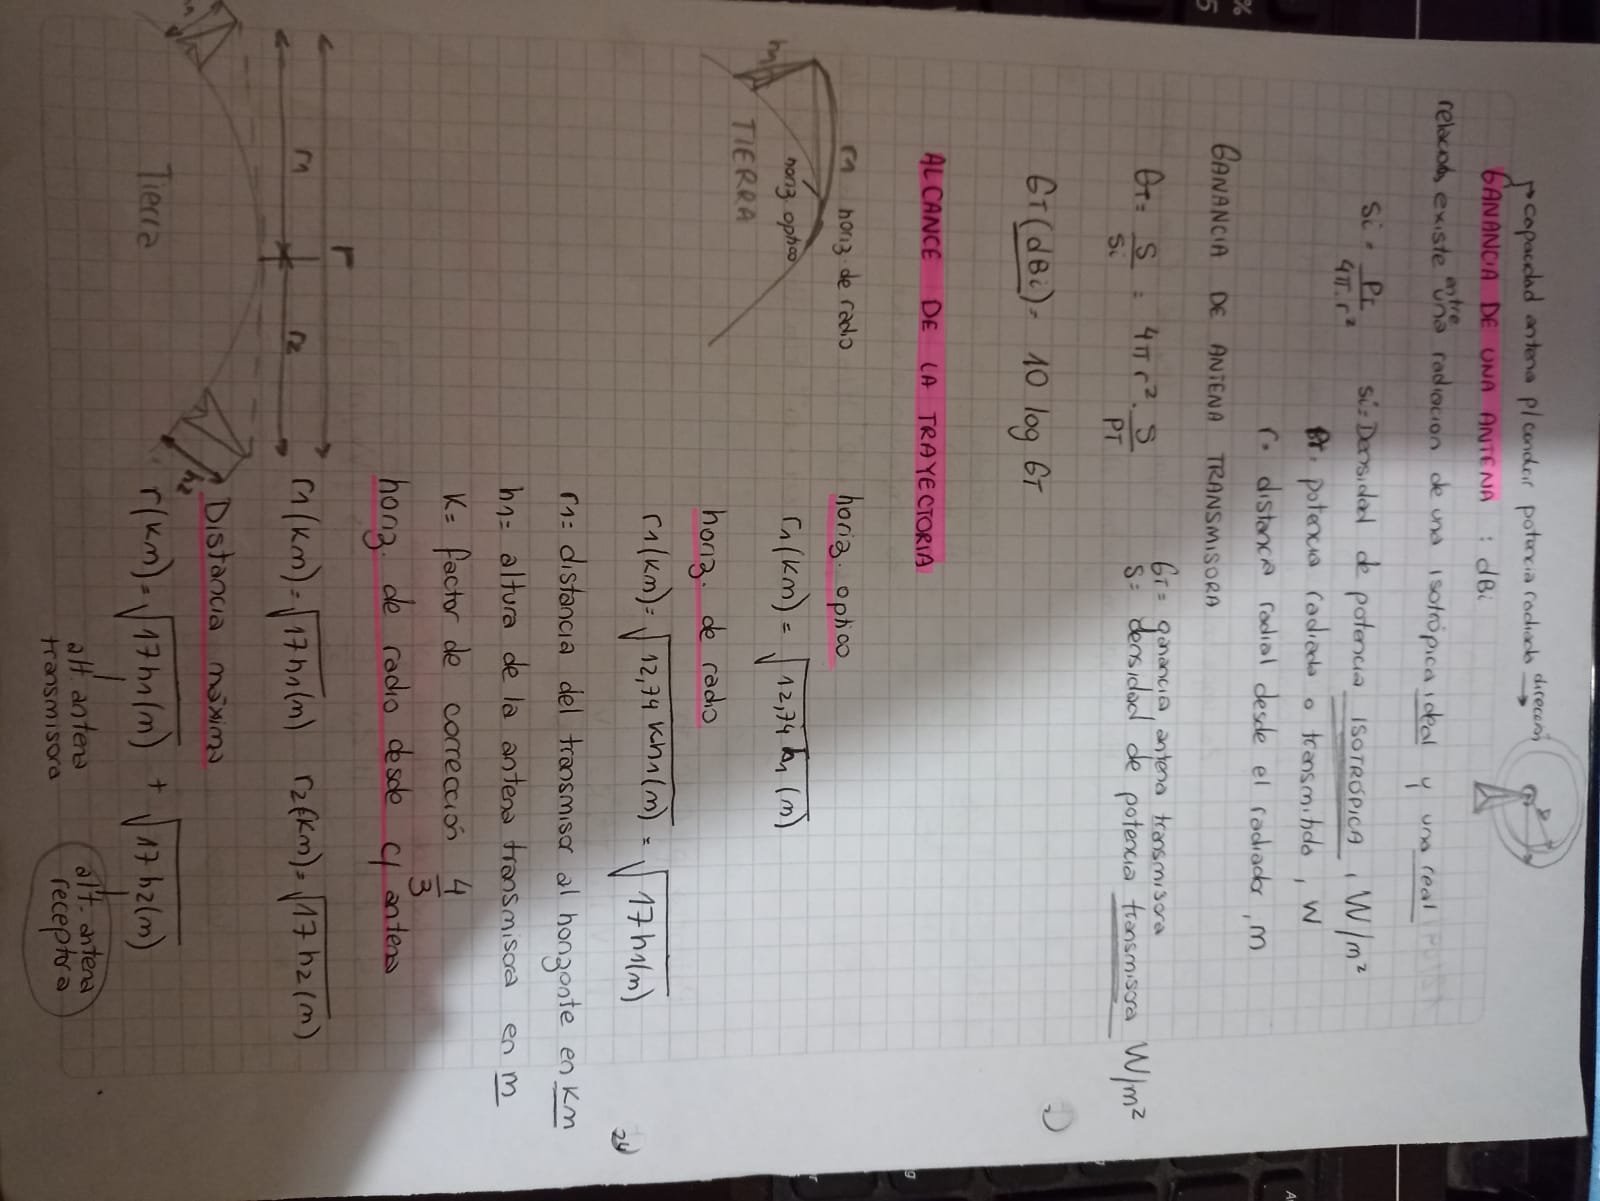 → capacidad antena p/ conducir potencia radiada dirección →
GANANCIA DE UNA ANTENA : dBi
relación existe entre una radiacion de una isotrópica ideal y una real
Si = PT / 4π.r²
Si = Densidad de potencia ISOTRÓPICA, W/m²
PT = potencia radiada o transmitida, W
r = distancia radial desde el radiador, m
GANANCIA DE ANTENA TRANSMISORA
GT = S / Si = 4π r² . S / PT
GT = ganancia antena transmisora
S = densidad de potencia transmisora W/m²
GT (dBi) = 10 log GT
ALCANCE DE LA TRAYECTORIA
r1 horiz. de radio
horiz. optico
h1
TIERRA
horiz. optico
r1 (km) = √12,74 h1 (m)
horiz. de radio
r1 (km) = √12,74 k h1 (m) = √17 h1 (m)
24
r1 = distancia del transmisor al horizonte en km
h1 = altura de la antena transmisora en m
K = factor de corrección 4/3
horiz. de radio desde c/ antena
r
r1 r2
r1 (km) = √17 h1 (m) r2 (km) = √17 h2 (m)
h1
h2
Tierra
Distancia máxima
r (km) = √17 h1 (m) + √17 h2 (m)
alt. antena transmisora
alt. antena receptora